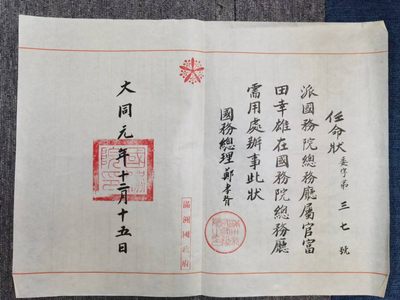 任命狀 委字第三七號
派國務院總務廳屬官富
田幸雄在國務院總務廳
需用處辦事此狀
國務總理 鄭孝胥
大同元年十二月十五日
滿洲國政府